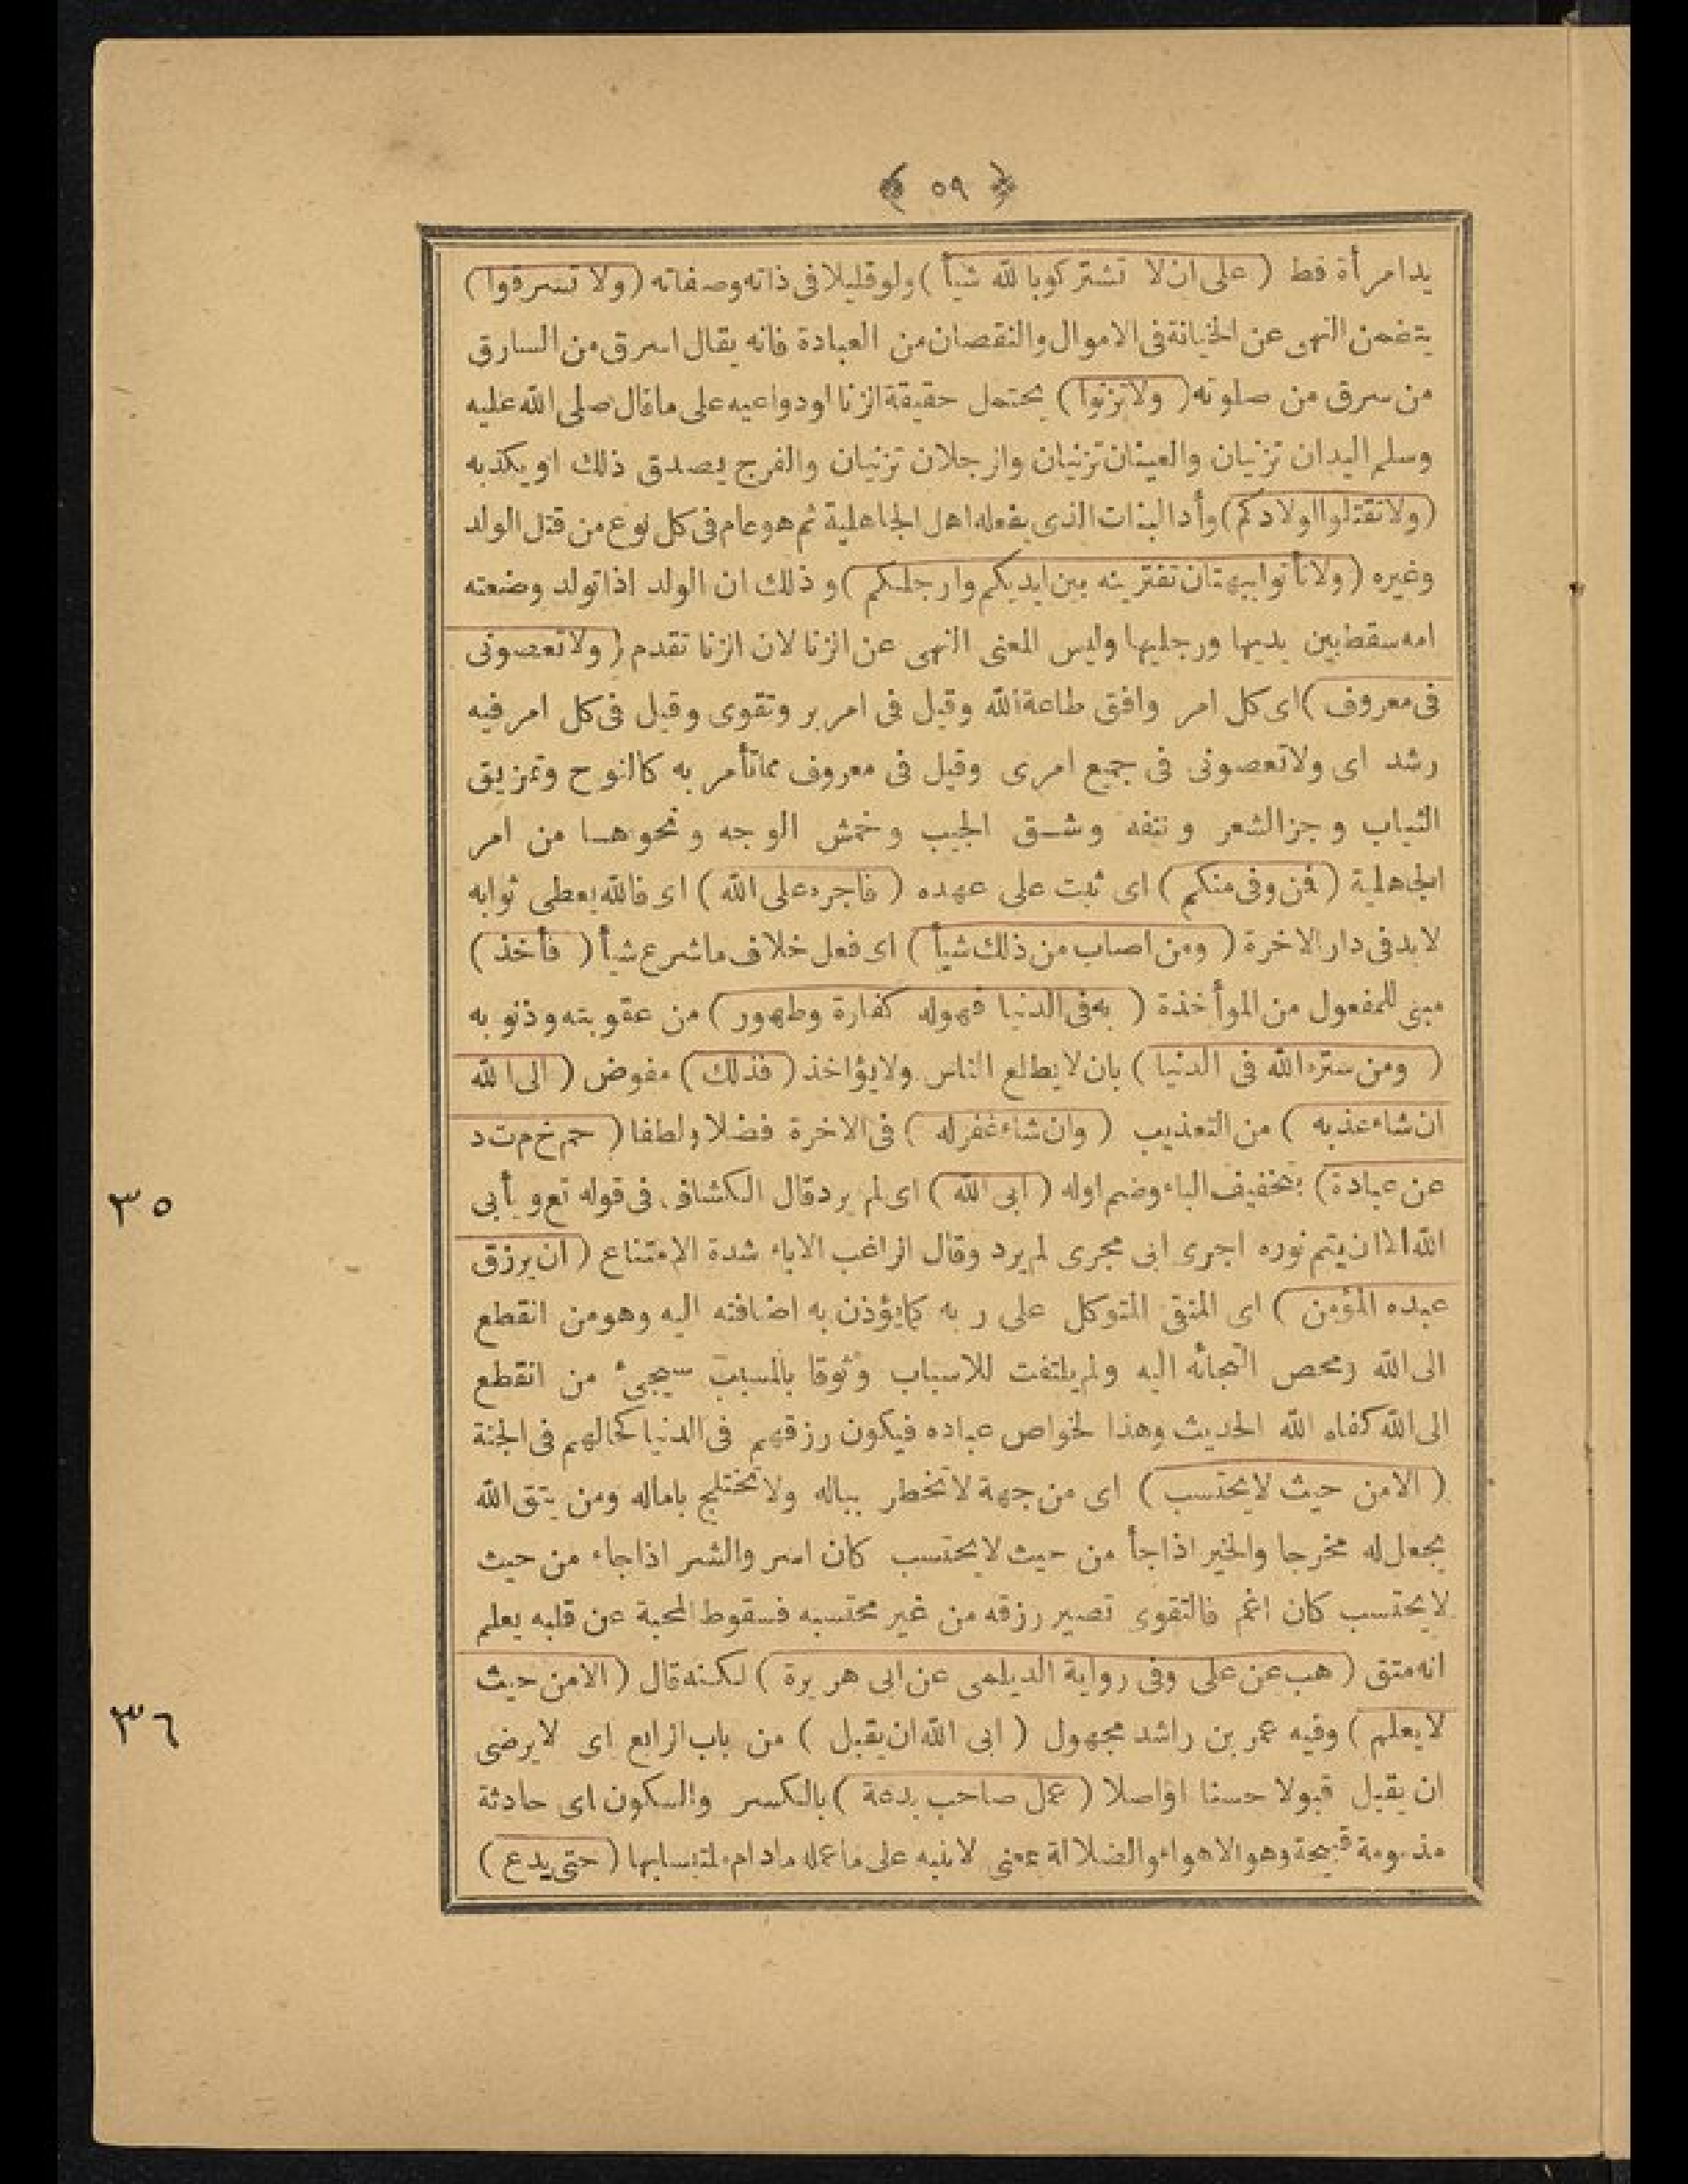 ﴿ ٥٩ ﴾
يد امرأة قط (على ان لا تشتركوا بالله شيأ) ولو قليلا فى ذاته وصفاته (ولا تسرقوا)
يتضمن النهى عن الخيانة فى الاموال والنقصان من العبادة فانه يقال اسرق من السارق
من سرق من صلوته (ولا تزنوا) يحتمل حقيقة الزنا او دواعيه على ما قال صلى الله عليه
وسلم اليدان تزنيان والعينان تزنيان والرجلان تزنيان والفرج يصدق ذلك او يكذبه
(ولا تقتلوا اولادكم) وأد البنات الذى يفعله اهل الجاهلية ثم هو عام فى كل نوع من قتل الولد
وغيره (ولا تأتوا ببهتان تفترينه بين ايديكم وارجلكم) وذلك ان الولد اذا تولد وضعته
امه سقط بين يديها ورجليها وليس المعنى النهى عن الزنا لان الزنا تقدم (ولا تعصونى
فى معروف) اى كل امر وافق طاعة الله وقيل فى امر بر وتقوى وقيل فى كل امر فيه
رشد اى ولا تعصونى فى جميع امرى وقيل فى معروف مما تأمر به كالنوح وتمزيق
الثياب وجز الشعر ونتفه وشق الجيب وخمش الوجه ونحوها من امر
الجاهلية (فمن وفى منكم) اى ثبت على عهده (فاجره على الله) اى فالله يعطى ثوابه
لا بد فى دار الاخرة (ومن اصاب من ذلك شيأ) اى فعل خلاف ما شرع شيأ (فأخذ)
مبنى للمفعول من المؤاخذة (به فى الدنيا فهو له كفارة وطهور) من عقوبته وذنوبه
(ومن ستره الله فى الدنيا) بان لا يطلع الناس ولا يؤاخذ (فذلك) مفوض (الى الله
ان شاء عذبه) من التعذيب (وان شاء غفر له) فى الاخرة فضلا ولطفا (حم خ م ت د
عن عبادة) بتخفيف الباء وضم اوله (ابى الله) اى لم يرد قال الكشاف فى قوله تع ويأبى
الله الا ان يتم نوره اجرى ابى مجرى لم يرد وقال الراغب الاباء شدة الامتناع (ان يرزق
عبده المؤمن) اى المتقى المتوكل على ربه كما يؤذن به اضافته اليه وهو من انقطع
الى الله ومحص التجائه اليه ولم يلتفت للاسباب وثوقا بالمسبب سيجئ من انقطع
الى الله كفاه الله الحديث وهذا لخواص عباده فيكون رزقهم فى الدنيا كحالهم فى الجنة
(الا من حيث لا يحتسب) اى من جهة لا تخطر بباله ولا تختلج باماله ومن يتق الله
يجعل له مخرجا والخير اذا جأ من حيث لا يحتسب كان اسر والشر اذا جاء من حيث
لا يحتسب كان اغم فالتقوى تصير رزقه من غير محتسبه فسقوط المحبة عن قلبه يعلم
انه متق (هب عن على وفى رواية الديلمى عن ابى هريرة) لكنه قال (الا من حيث
لا يعلم) وفيه عمر بن راشد مجهول (ابى الله ان يقبل) من باب الرابع اى لا يرضى
ان يقبل قبولا حسنا او اصلا (عمل صاحب بدعة) بالكسر والسكون اى حادثة
مذمومة قبيحة وهو الاهواء والضلالة بمعنى لا يثيبه على ما عمله مادام متلبسا بها (حتى يدع)
٣٥
٣٦